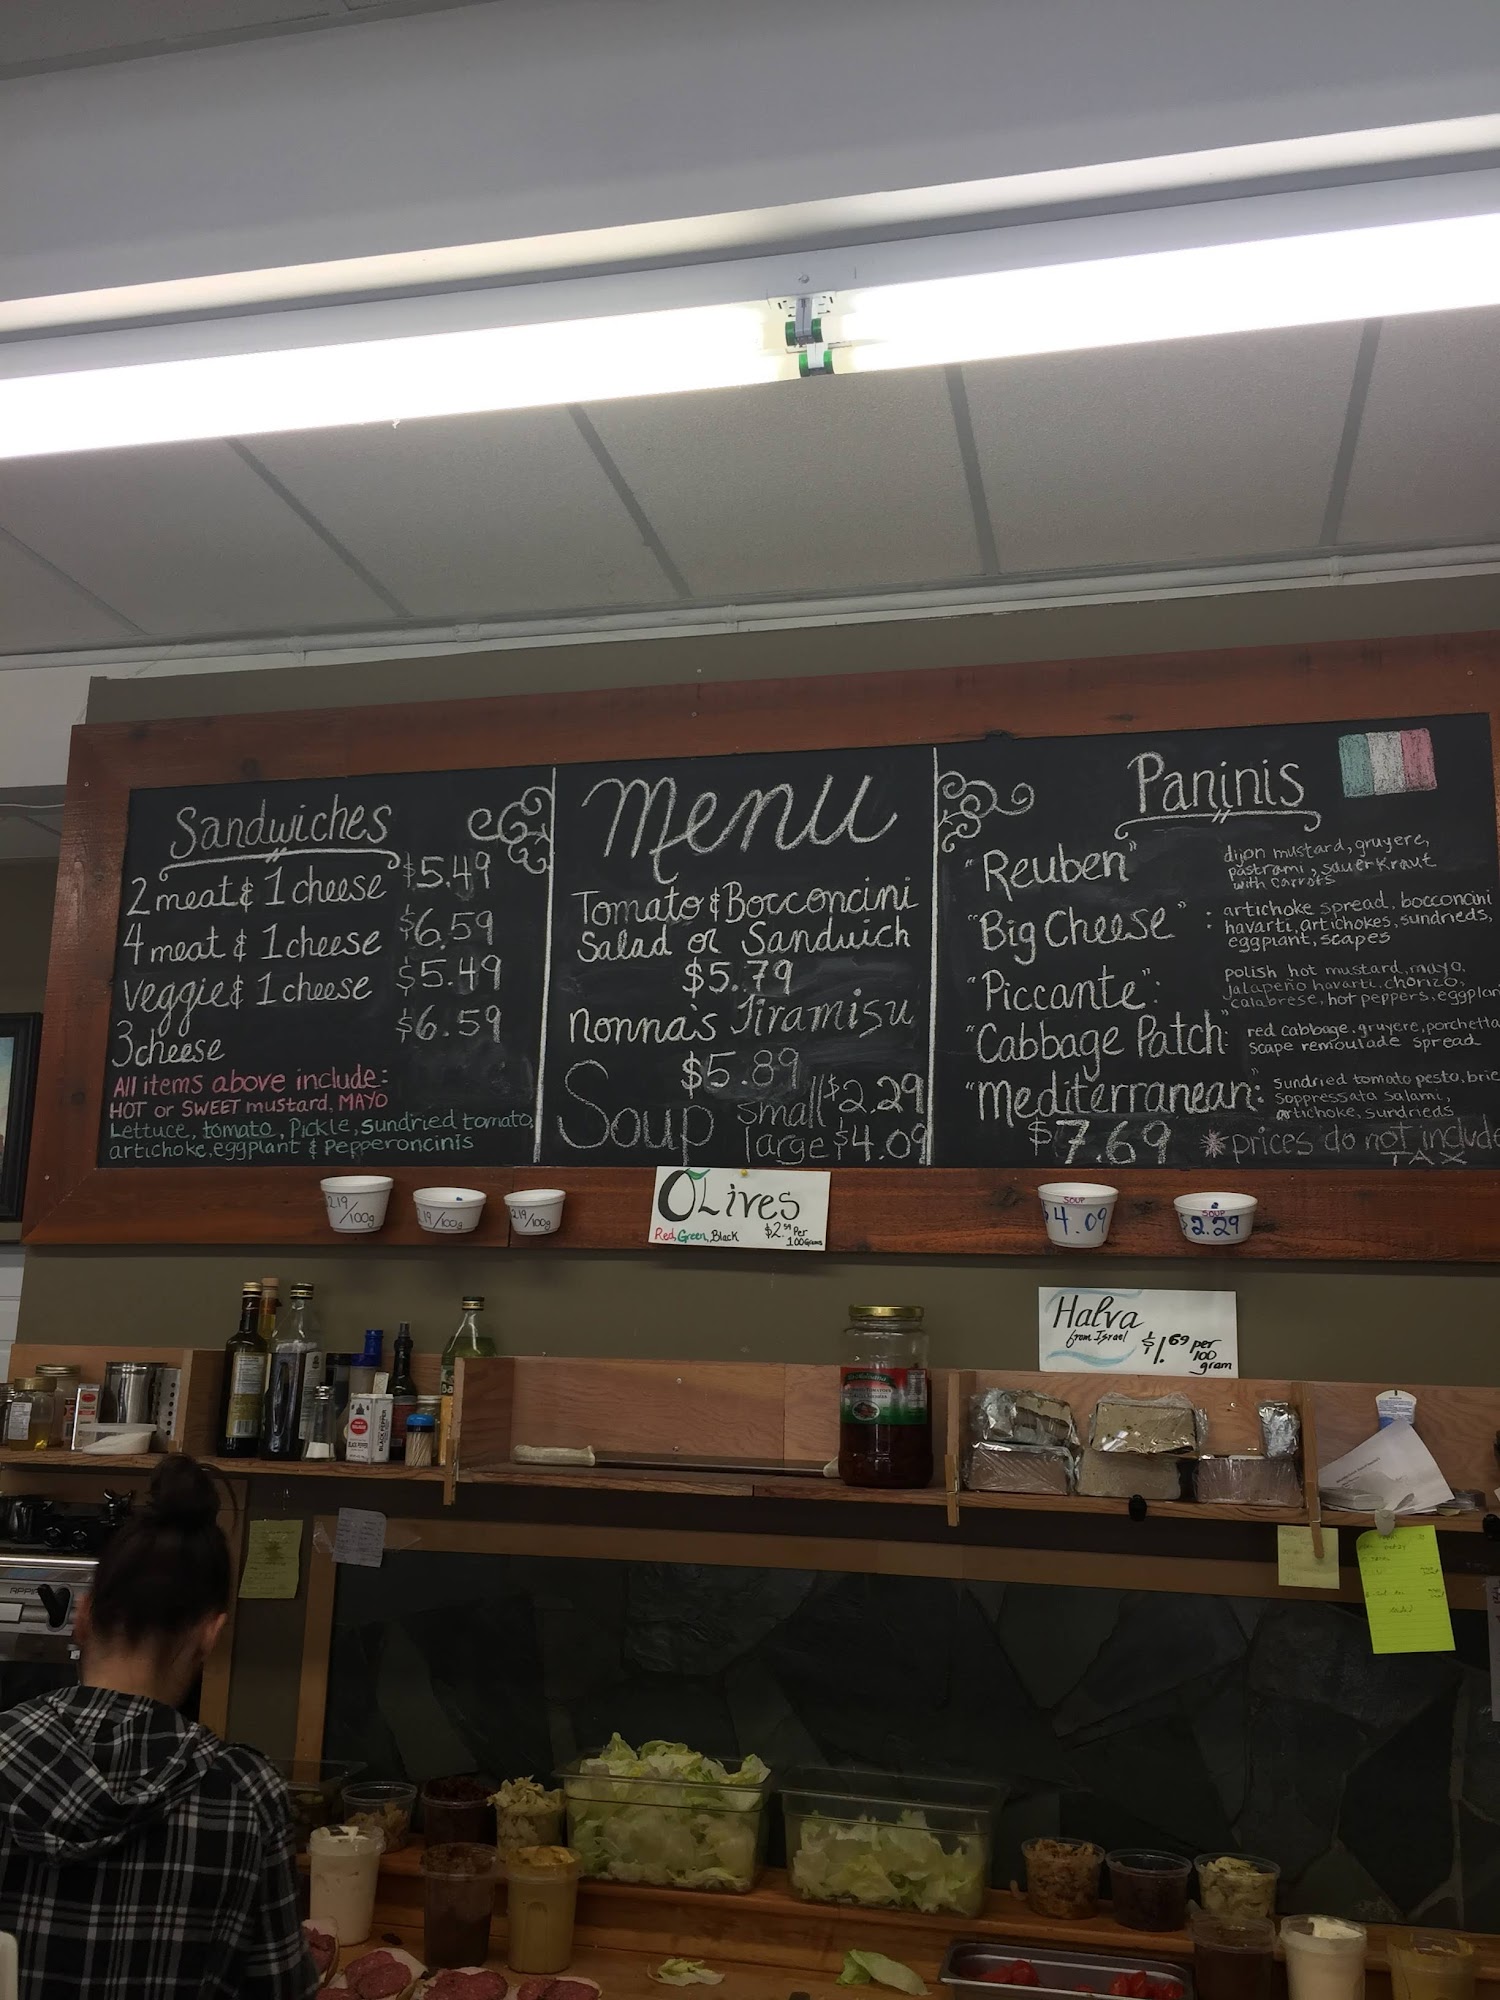 Sandwiches
2 meat & 1 cheese $5.49
4 meat & 1 cheese $6.59
veggie & 1 cheese $5.49
3 cheese $6.59
All items above include:
HOT or SWEET mustard, MAYO
Lettuce, tomato, Pickle, sundried tomato,
artichoke, eggplant & Pepperoncinis
Menu
Tomato & Bocconcini
Salad or Sandwich
$5.79
Nonna's Tiramisu
$5.89
Soup small $2.29
large $4.09
Paninis
"Reuben" dijon mustard, gruyere,
pastrami, sauerkraut
with carrots
"Big Cheese": artichoke spread, bocconcini
havarti, artichokes, sundrieds,
eggplant, scapes
"Piccante": polish hot mustard, mayo,
jalapeño havarti, chorizo,
calabrese, hot peppers, eggplan
"Cabbage Patch": red cabbage, gruyere, porchetta
scape remoulade spread
"Mediterranean": sundried tomato pesto, brie
soppressata salami,
artichoke, sundrieds
$7.69 *prices do not include
TAX
2.19/100g
2.19/100g
2.19/100g
Olives
Red, Green, Black $2.59 Per
100 Grams
SOUP
$4.09
SOUP
$2.29
Halva
from Israel $1.69 per
100
gram
BLACK PEPPER